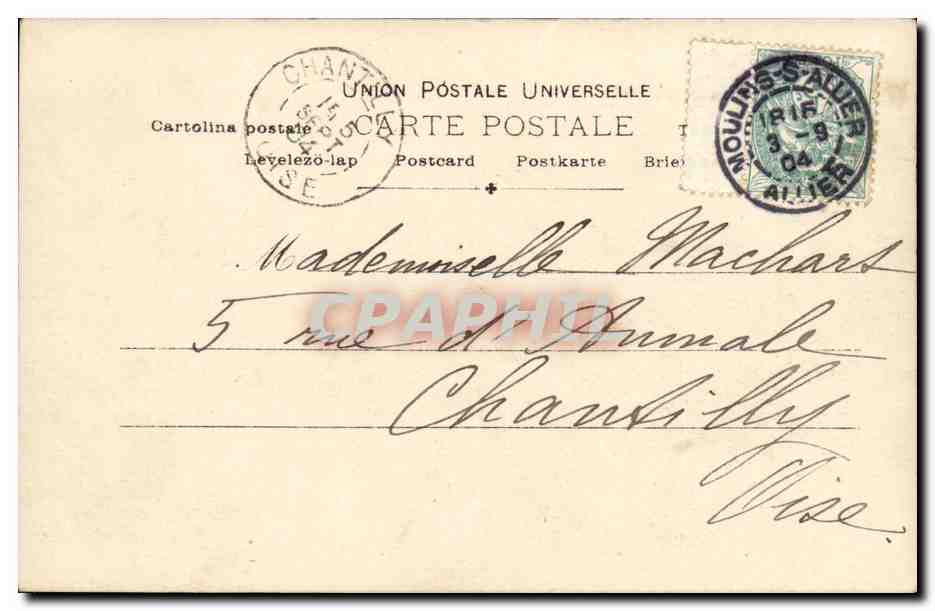 UNION POSTALE UNIVERSELLE
Cartolina postale CARTE POSTALE
Levelezö-lap Postcard Postkarte Brie
CHANTILLY
15
SEPT
04
OISE
MOULINS-S-ALLIER
3 -9
04
ALLIER
Mademoiselle Machart
5 rue d'Aumale
Chantilly
Oise.
CPAPHIL